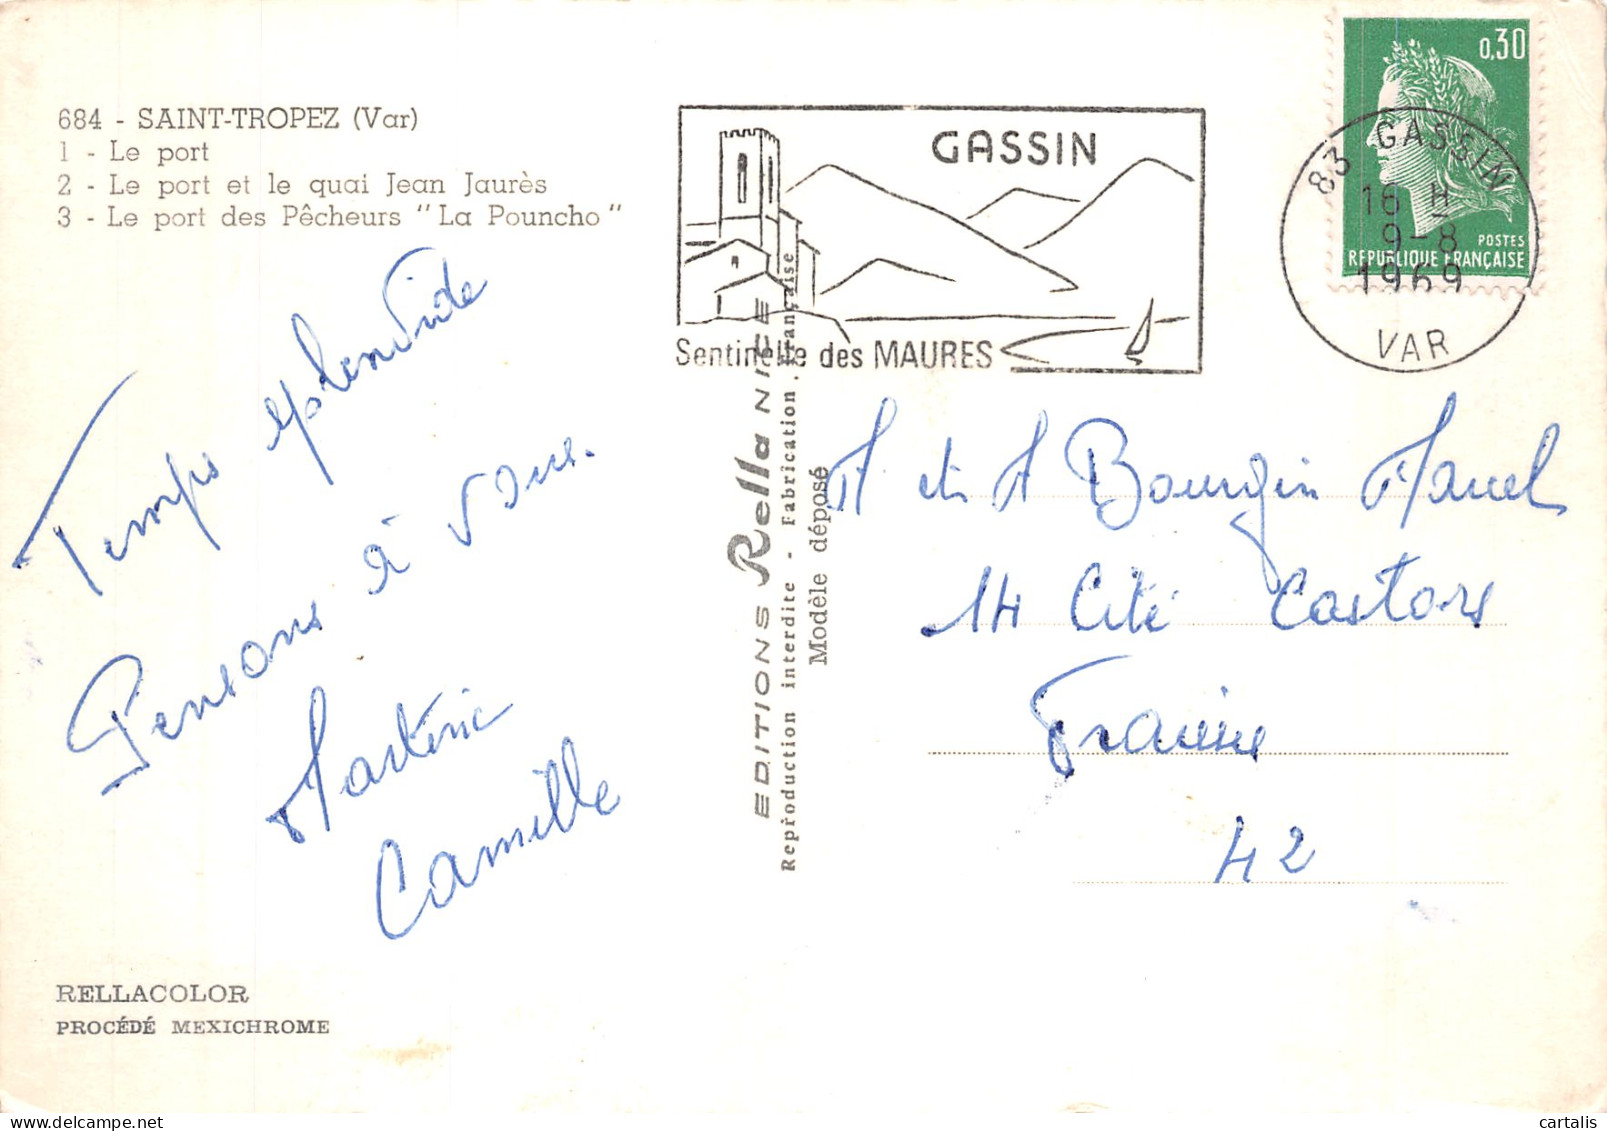 684 - SAINT-TROPEZ (Var)
1 - Le port
2 - Le port et le quai Jean Jaurès
3 - Le port des Pêcheurs "La Pouncho"
Temps splendide
Pensons à vous.
Martine
Camille
RELLACOLOR
PROCÉDÉ MEXICHROME
EDITIONS Rella NICE
Reproduction interdite - Fabrication Française
Modèle déposé
GASSIN
Sentinelle des MAURES
0,30
POSTES
REPUBLIQUE FRANÇAISE
83 GASSIN
16 H
9-8
1969
VAR
M et M Bourgin Marcel
14 Cité Castors
Fraisse
42
cartalis
delcampe.net